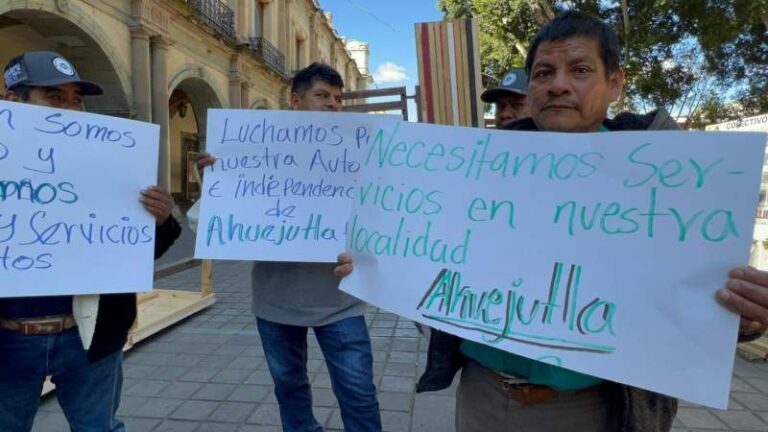 Somos
y
y Servicios
Luchamos
nuestra
e independenci
de
Ahuejutla
Necesitamos Ser-
vicios en nuestra
localidad
Ahuejutla
COLECTIVO